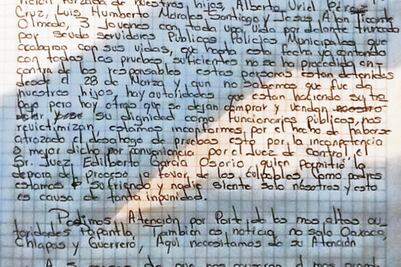 de nuestros hijos, Alberto Uriel Pérez
Cruz, Luis Humberto Morales Santiago y Jesus Alan Ticante
Olmedo, 3 Jovenes con toda una vida por delante truncada
por seudo servidores Públicos, Policias Municipales que
acabaron con sus vidas, que hasta esta fecha ya contando
con todas las pruebas suficientes no se ha procedido en
contra de los responsables estas personas estan detenidas
desde 28 Marzo y sabemos que fue de
nuestros hijos, hay autoridades que estan haciendo su
bajo pero hay otros que se dejan comprar y vendan
su dignidad como funcionarios públicos, nos
revictimizan, estamos inconformes por el hecho de haberse
atrazado el desahogo de pruebas esto por la incompetencia
o mejor dicho por conveniencia por el Juez de control, el
Sr. Juez Edilberto García Osorio, quien permitió se
depara del proceso a favor, de los culpables, como madres
estamos sufriendo y nadie siente solo nosotros y esto
es causa de tanta impunidad.
Pedimos Atención por Parte, de las mas, altas au
toridades Papantla, También es, noticia, no solo Oaxaca,
Chiapas y Guerrero, Aquí necesitamos de su Atención
A 5 meses de que nos